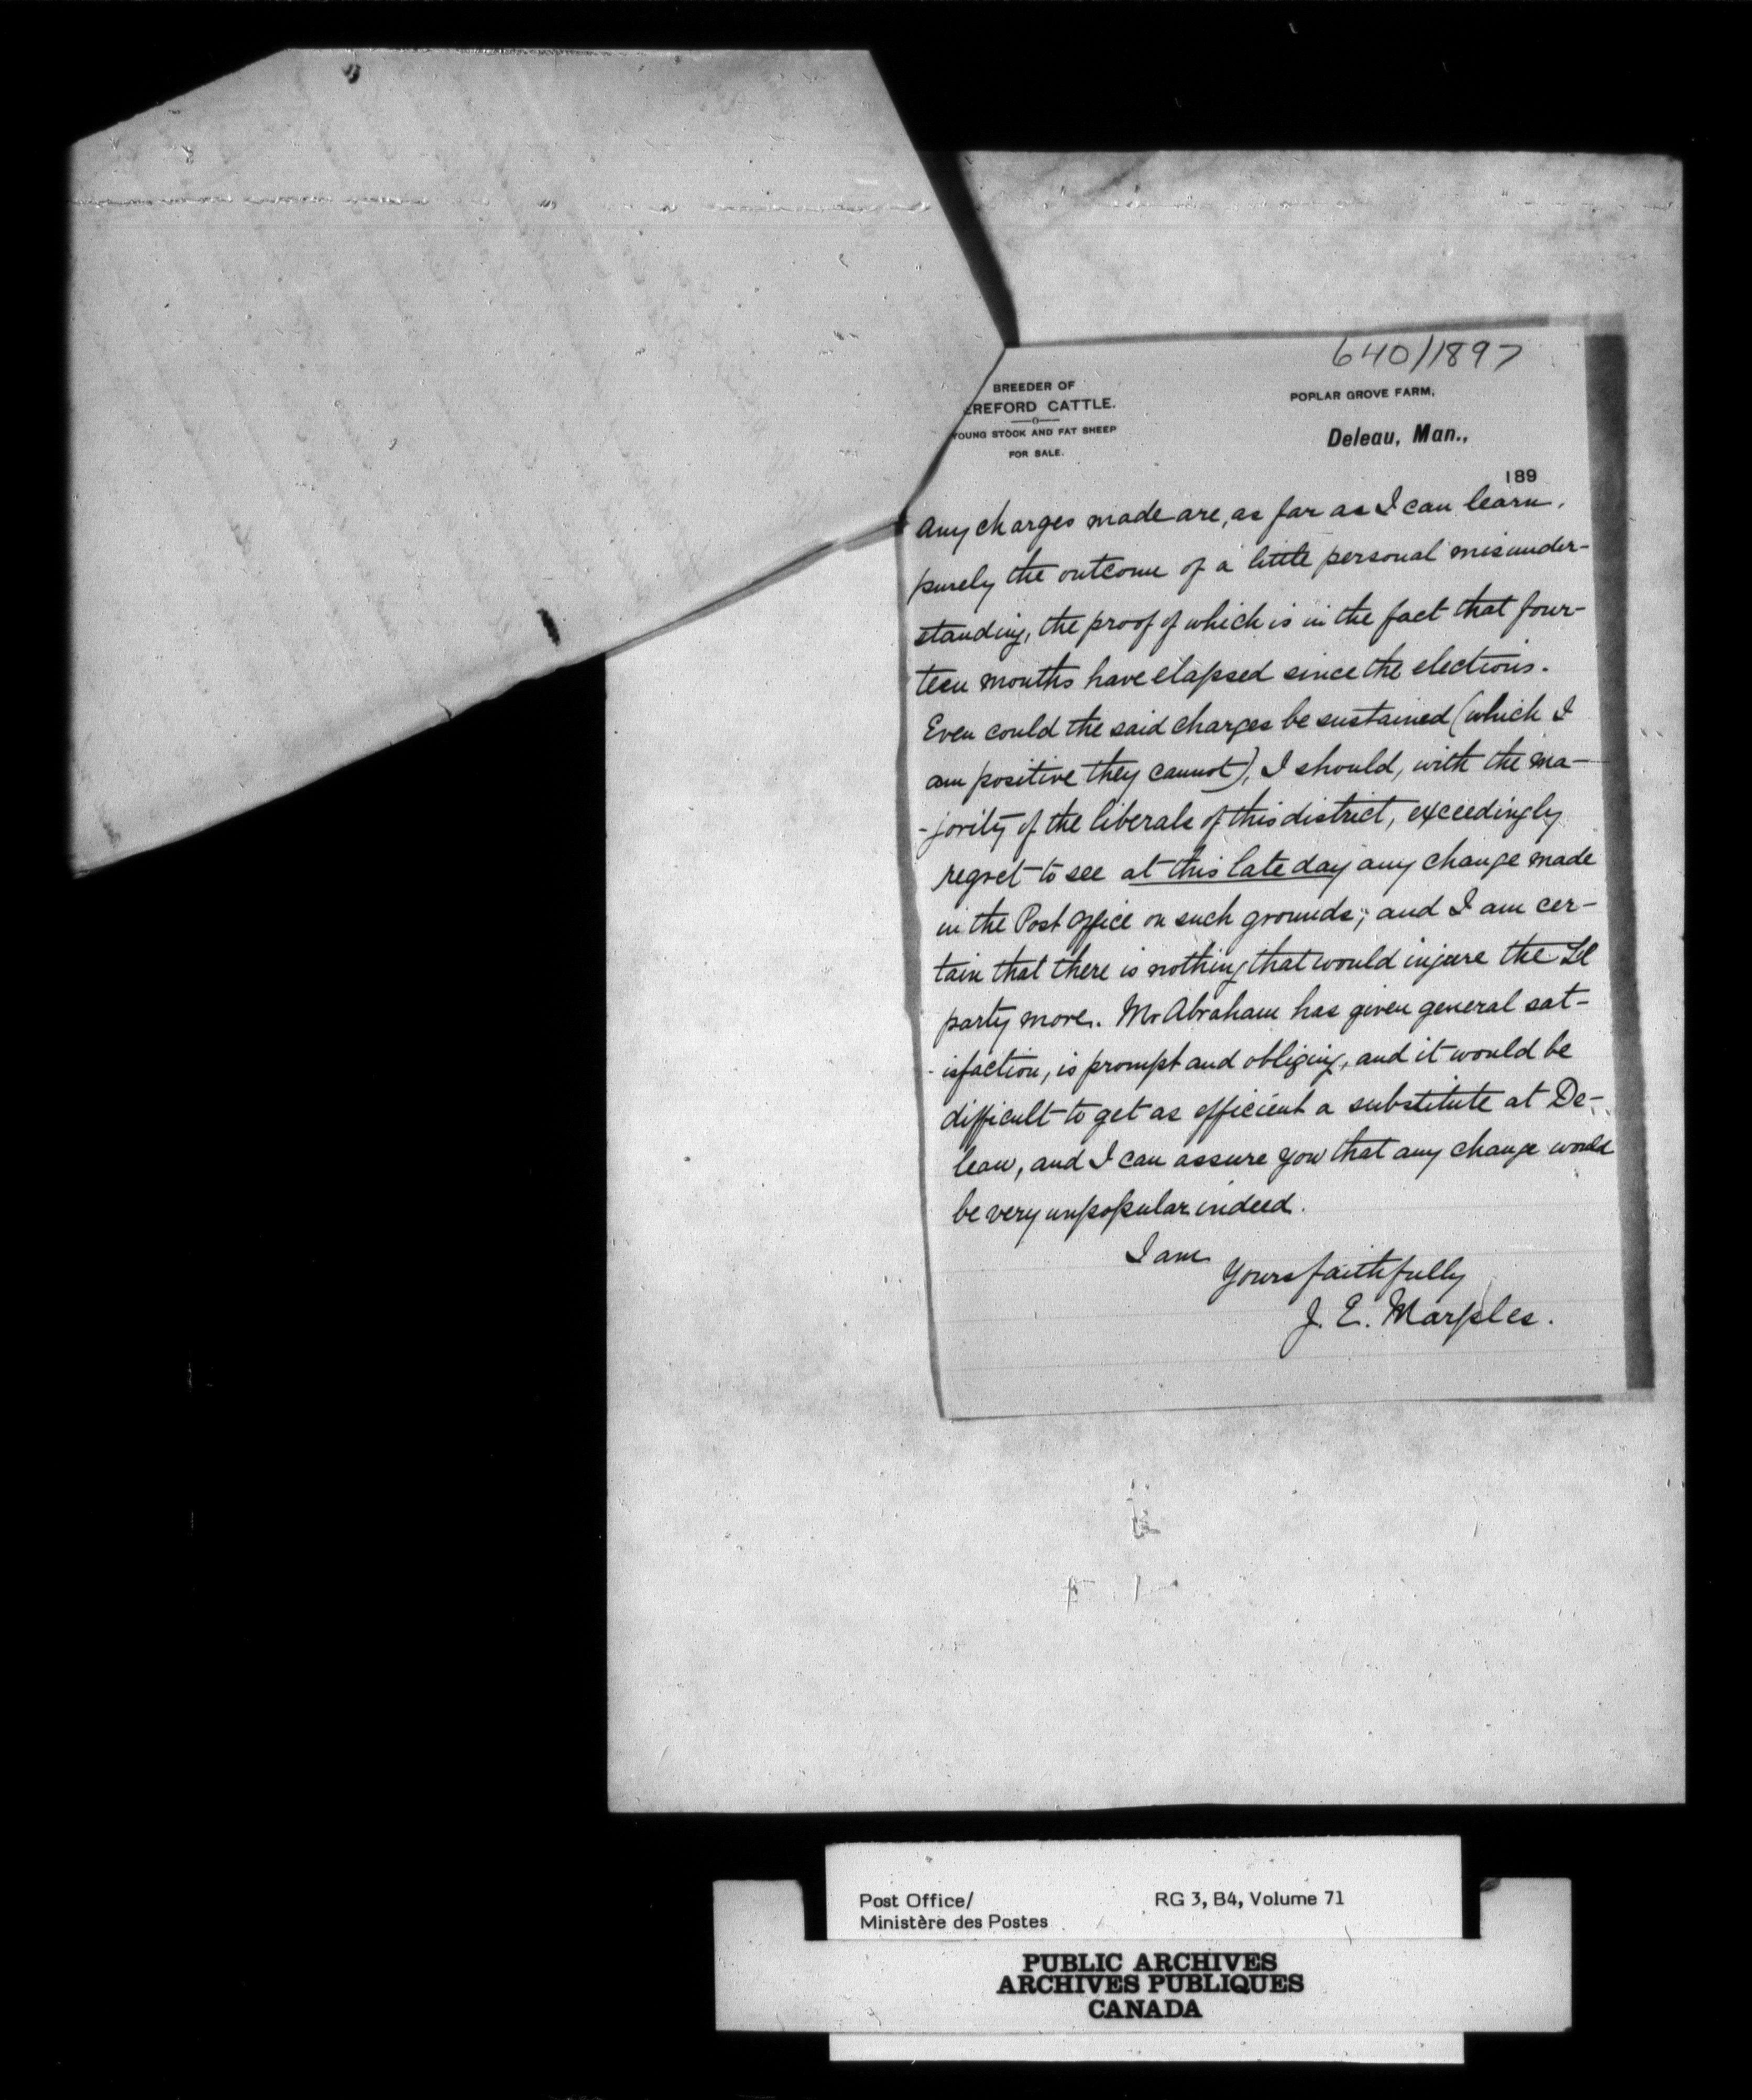 640/1897
BREEDER OF
EREFORD CATTLE.
YOUNG STOCK AND FAT SHEEP
FOR SALE.
POPLAR GROVE FARM,
Deleau, Man.,
189
Any charges made are, as far as I can learn,
purely the outcome of a little personal misunder-
standing, the proof of which is in the fact that four-
teen months have elapsed since the elections.
Even could the said charges be sustained (which I
am positive they cannot), I should, with the ma-
-jority of the liberals of this district, exceedingly
regret to see at this late day any change made
in the Post Office on such grounds; and I am cer-
tain that there is nothing that would injure the
party more. Mr Abraham has given general sat-
-isfaction, is prompt and obliging, and it would be
difficult to get as efficient a substitute at De-
leau, and I can assure you that any change would
be very unpopular indeed.
I am
Yours faithfully
J. E. Marples.
Post Office/
Ministère des Postes
RG 3, B4, Volume 71
PUBLIC ARCHIVES
ARCHIVES PUBLIQUES
CANADA